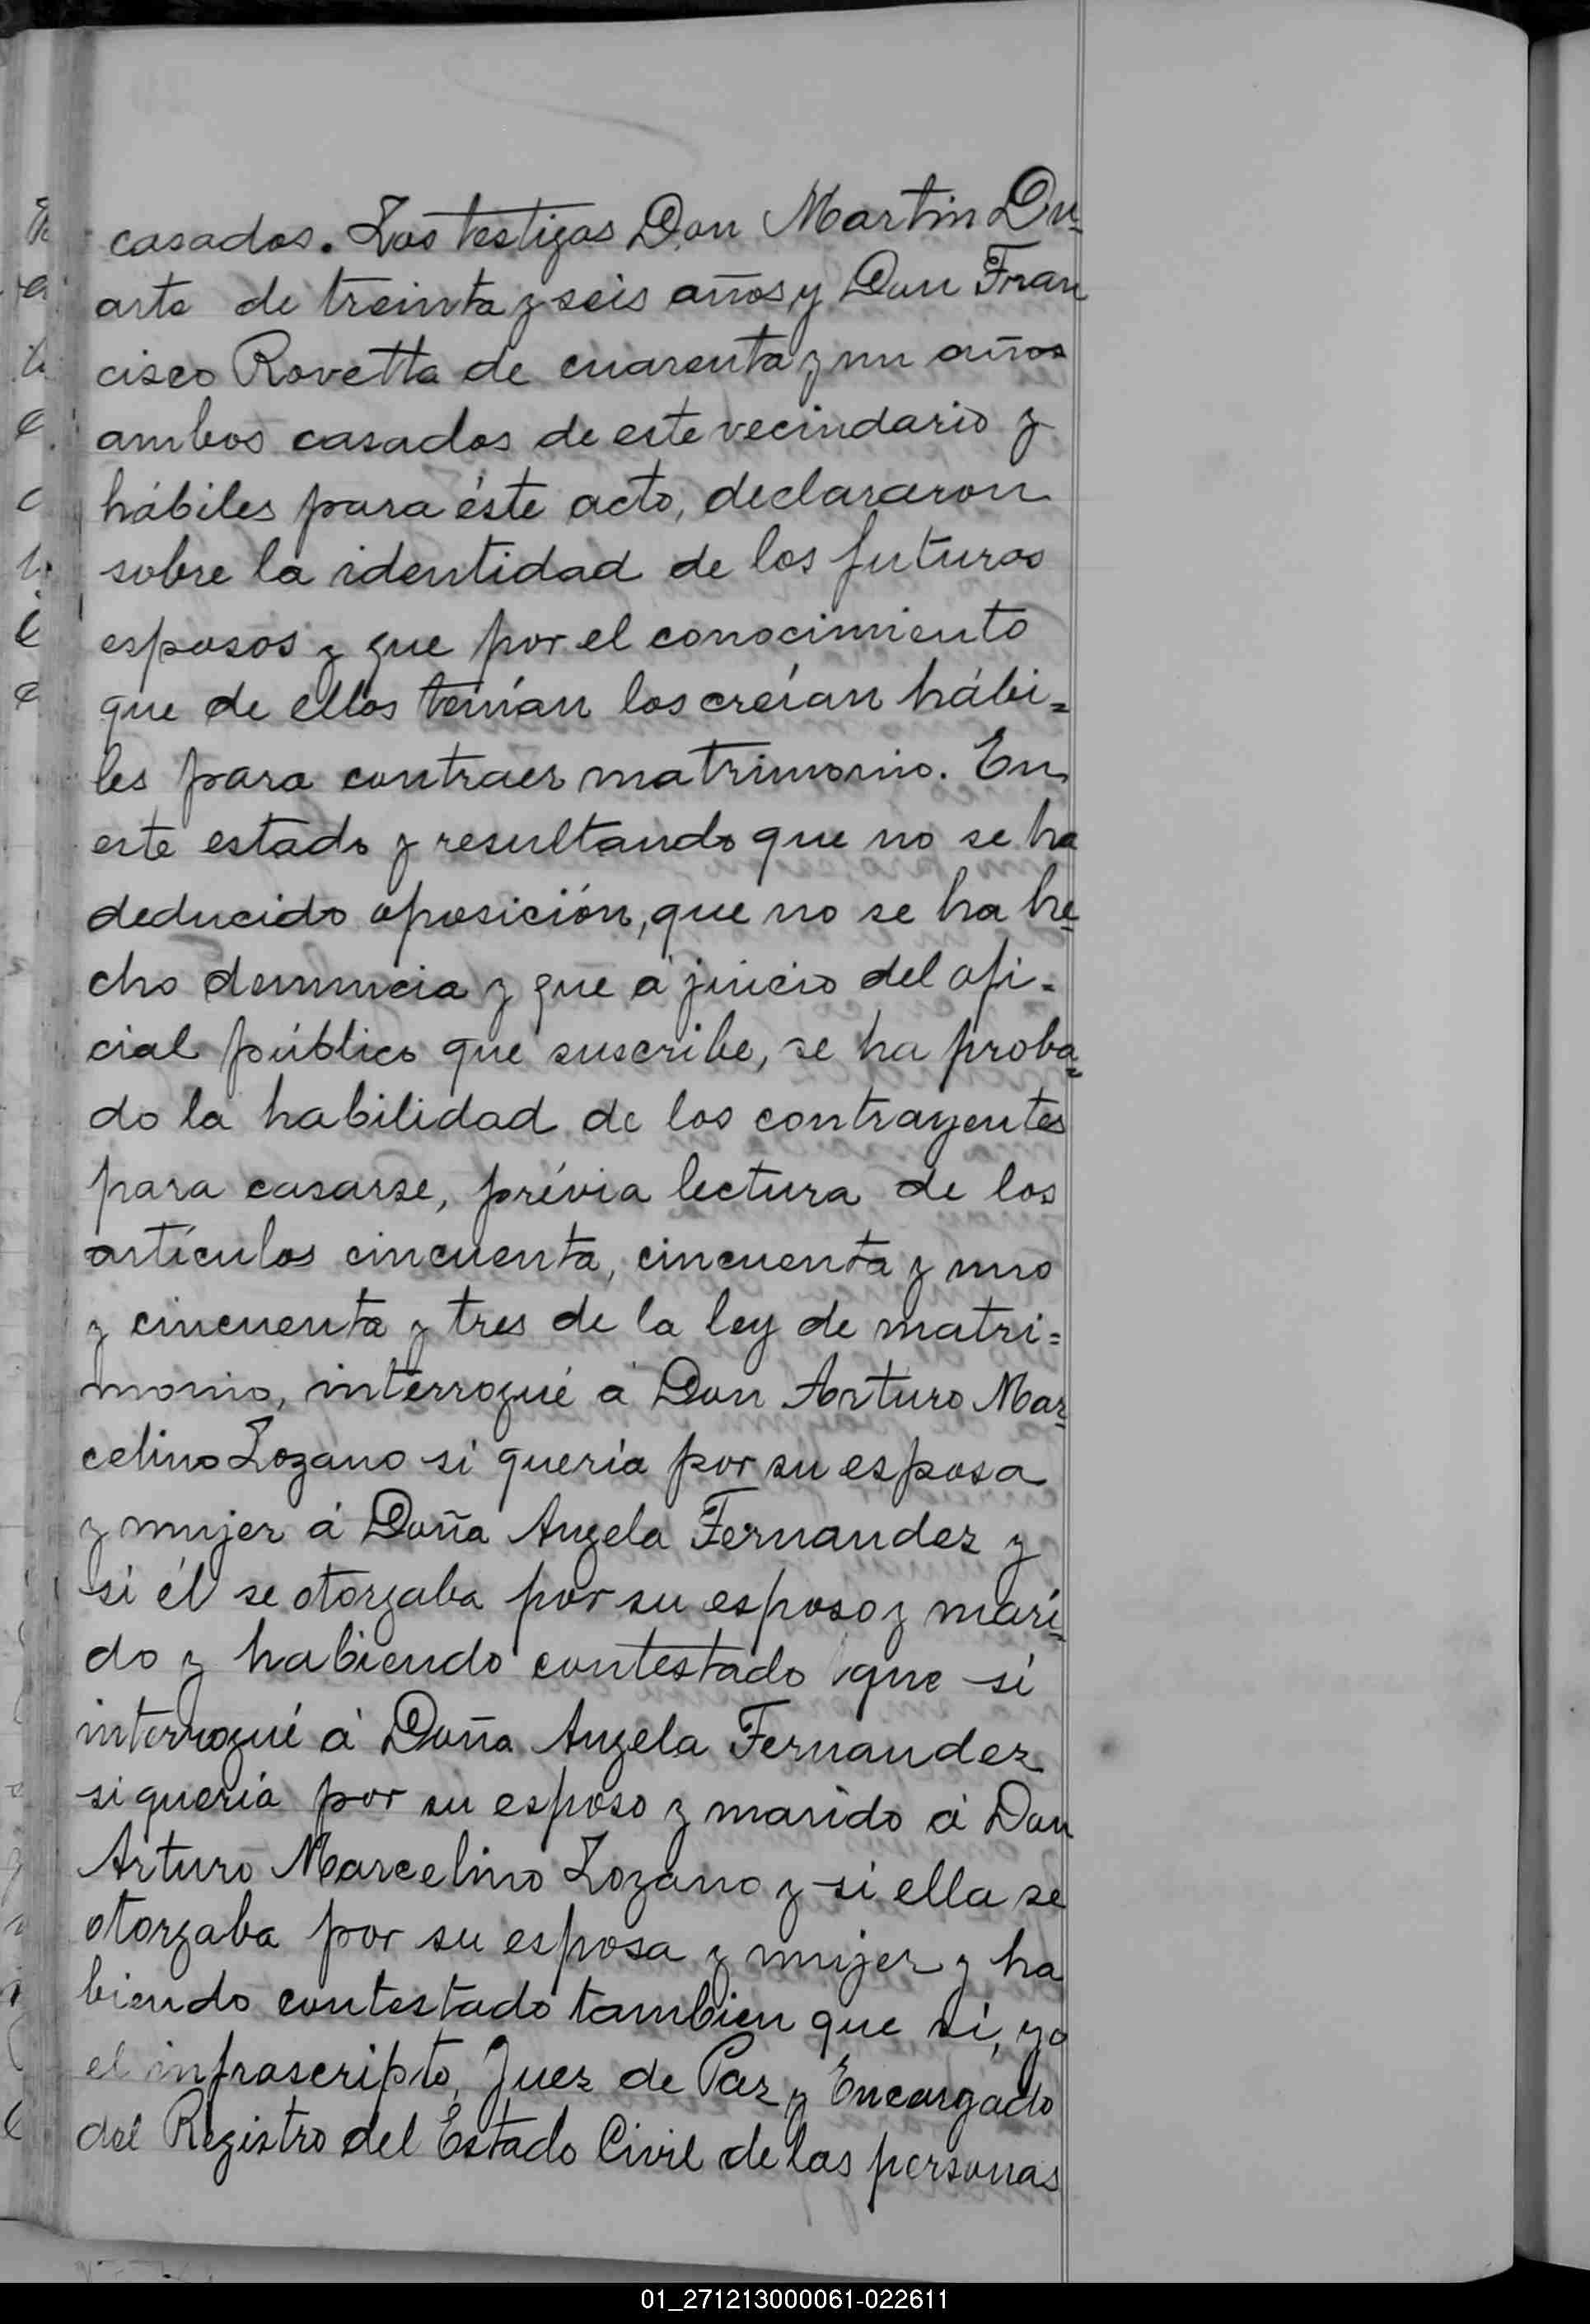 casados. Los testigos Don Martin Du-
arte de treinta y seis años y Don Fran
cisco Rovetta de cuarenta y un años
ambos casados de este vecindario y
hábiles para éste acto, declararon
sobre la identidad de los futuros
esposos y que por el conocimiento
que de ellos tenían los creían hábi=
les para contraer matrimonio. En
este estado y resultando que no se ha
deducido oposición, que no se ha he
cho denuncia y que á juicio del ofi=
cial público que suscribe, se ha proba=
do la habilidad de los contrayentes
para casarse, prévia lectura de los
artículos cincuenta, cincuenta y uno
y cincuenta y tres de la ley de matri=
monio, interrogué á Don Arturo Mar=
celino Lozano si quería por su esposa
y mujer á Doña Angela Fernandez y
si él se otorgaba por su esposo y mari=
do y habiendo contestado que sí
interrogué á Doña Angela Fernandez
si quería por su esposo y marido á Don
Arturo Marcelino Lozano y si ella se
otorgaba por su esposa y mujer y ha
biendo contestado tambien que sí, yo
el infrascripto, Juez de Paz y Encargado
del Registro del Estado Civil de las personas
01_271213000061-022611